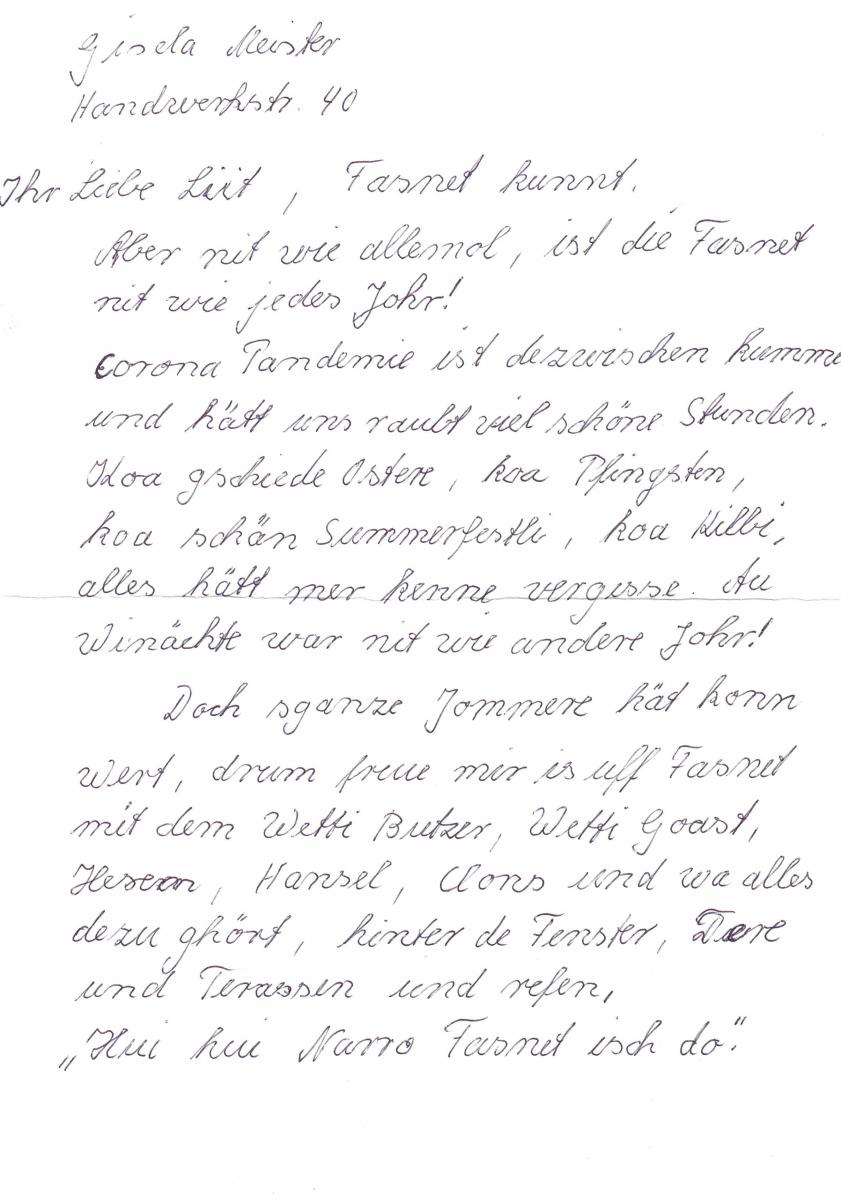 Gisela Meister
Handwerkstr. 40
Ihr Liebe Liit, Fasnet kunnt.
Aber nit wie allemol, ist die Fasnet
nit wie jedes Johr!
Corona Pandemie ist dezwischen kumme
und hätt uns raubt viel schöne Stunden.
Koa gschiede Ostere, koa Pfingsten,
koa schän Summerfestli, koa Kilbi,
alles hätt mer kenne vergesse. Au
Winächte war nit wie andere Johr!
Doch sganze Jommere hät konn
Wert, drum freue mir is uff Fasnet
mit dem Wetti Butzer, Wetti Goast,
Hexen, Hansel, Clons und wa alles
dezu ghört, hinter de Fenster, Dere
und Terassen und refen,
„Hui hui Narro Fasnet isch do".